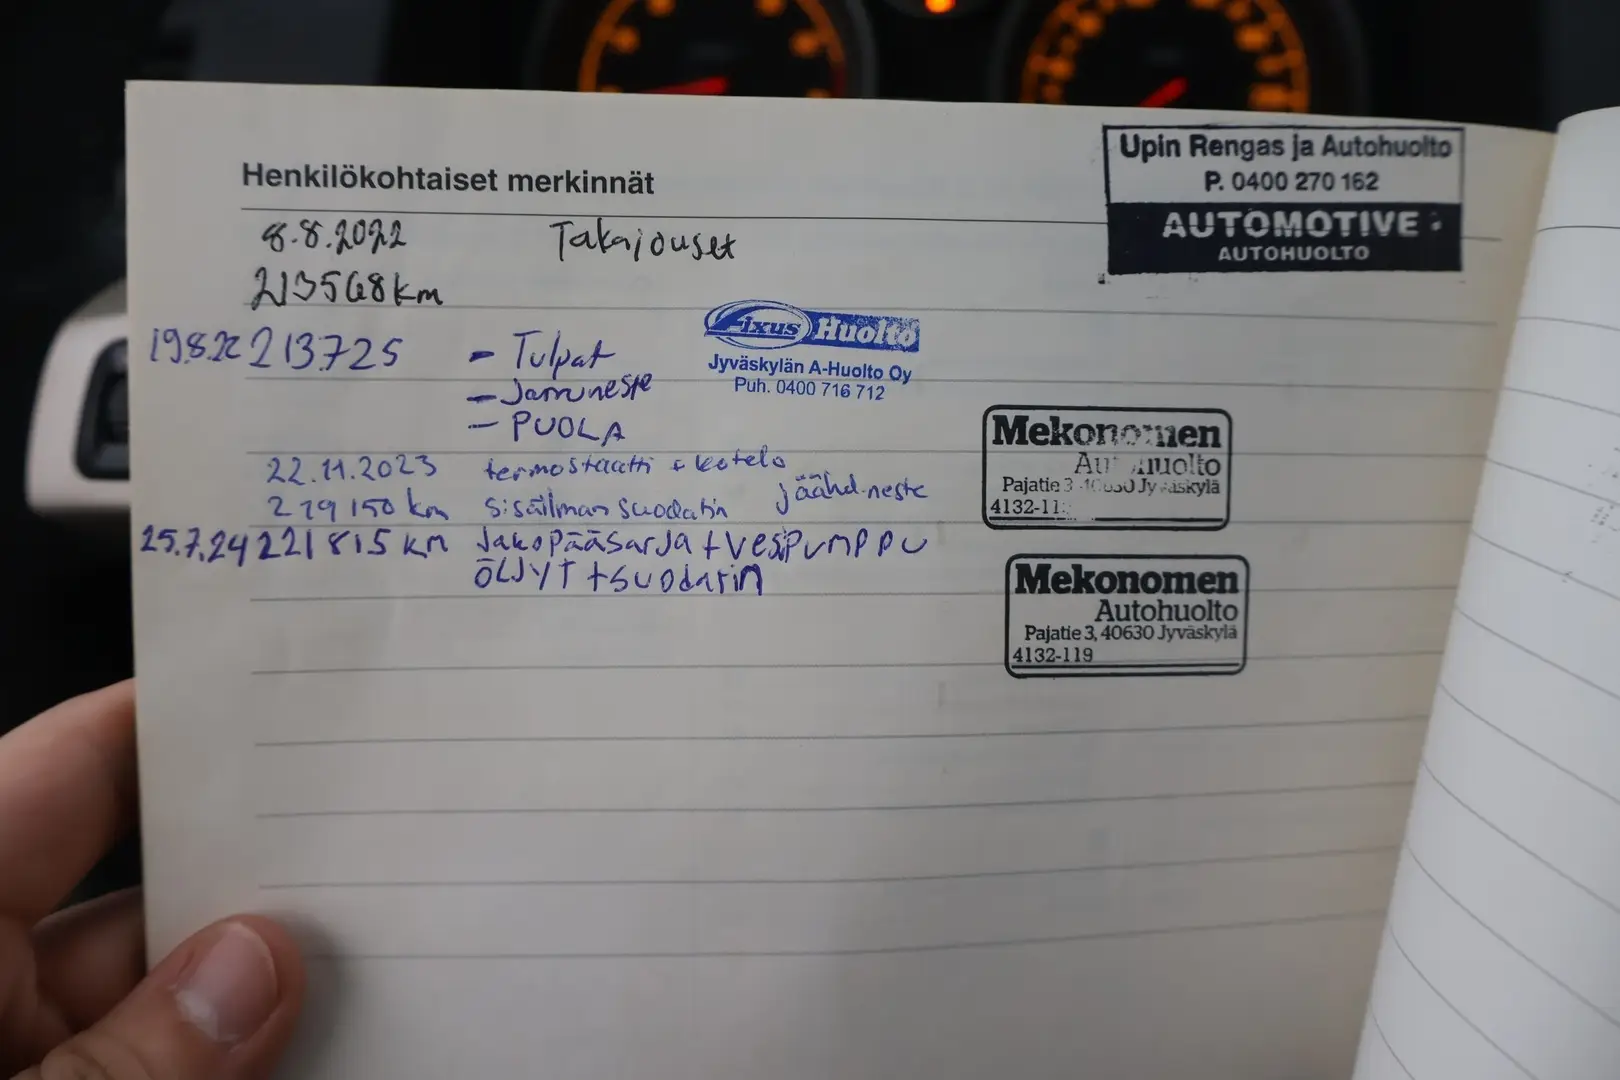 Henkilökohtaiset merkinnät
Upin Rengas ja Autohuolto
P. 0400 270 162
AUTOMOTIVE
AUTOHUOLTO
8.8.2022 Takajouset
213568 km
19.8.22 213725 - Tulpat
- Jarruneste
- PUOLA
Fixus Huolto
Jyväskylän A-Huolto Oy
Puh. 0400 716 712
22.11.2023 termostaatti + kotelo
jäähd.neste
219150 km sisäilman suodatin
Mekonomen
Autohuolto
Pajatie 3, 40630 Jyväskylä
4132-11
25.7.24 221815 km Jakopääsarja + vesipumppu
ÖLJYT + suodatin
Mekonomen
Autohuolto
Pajatie 3, 40630 Jyväskylä
4132-119